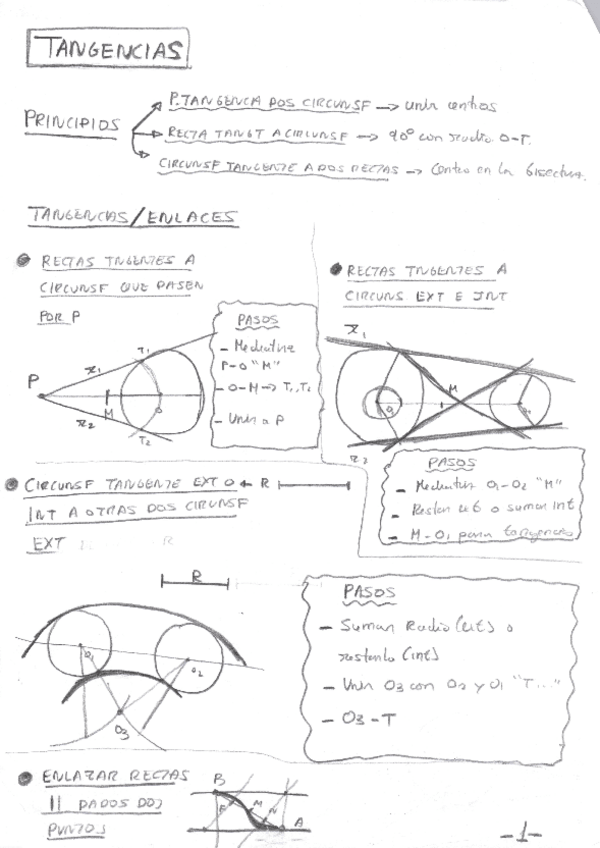 TANGENCIAS
PRINCIPIOS
P. TANGENCIA DOS CIRCUNSF → unir centros
RECTA TANGT A CIRCUNSF → 90° con radio O-T.
CIRCUNSF TANGENTE A DOS RECTAS → Centro en la bisectriz.
TANGENCIAS/ENLACES
RECTAS TNGENTES A
CIRCUNSF QUE PASEN
POR P
PASOS
- Mediatriz
P-O "M"
- O-M → T1, T2
- Unir a P
P
r1
T1
M
O
r2
T2
RECTAS TNGENTES A
CIRCUNS EXT E INT
r1
O1
M
O2
r2
PASOS
- Mediatriz O1-O2 "M"
- Restar ext o sumar int
- M-O1 para tangencias
CIRCUNSF TANGENTE EXT O ← R
INT A OTRAS DOS CIRUNSF
EXT
R
R
O1
O2
O3
PASOS
- Sumar Radio (ext) o
restarlo (int)
- Unir O3 con O2 y O1 "T..."
- O3-T
ENLAZAR RECTAS
|| DADOS DOS
PUNTOS
B
F
M
N
A
-1-